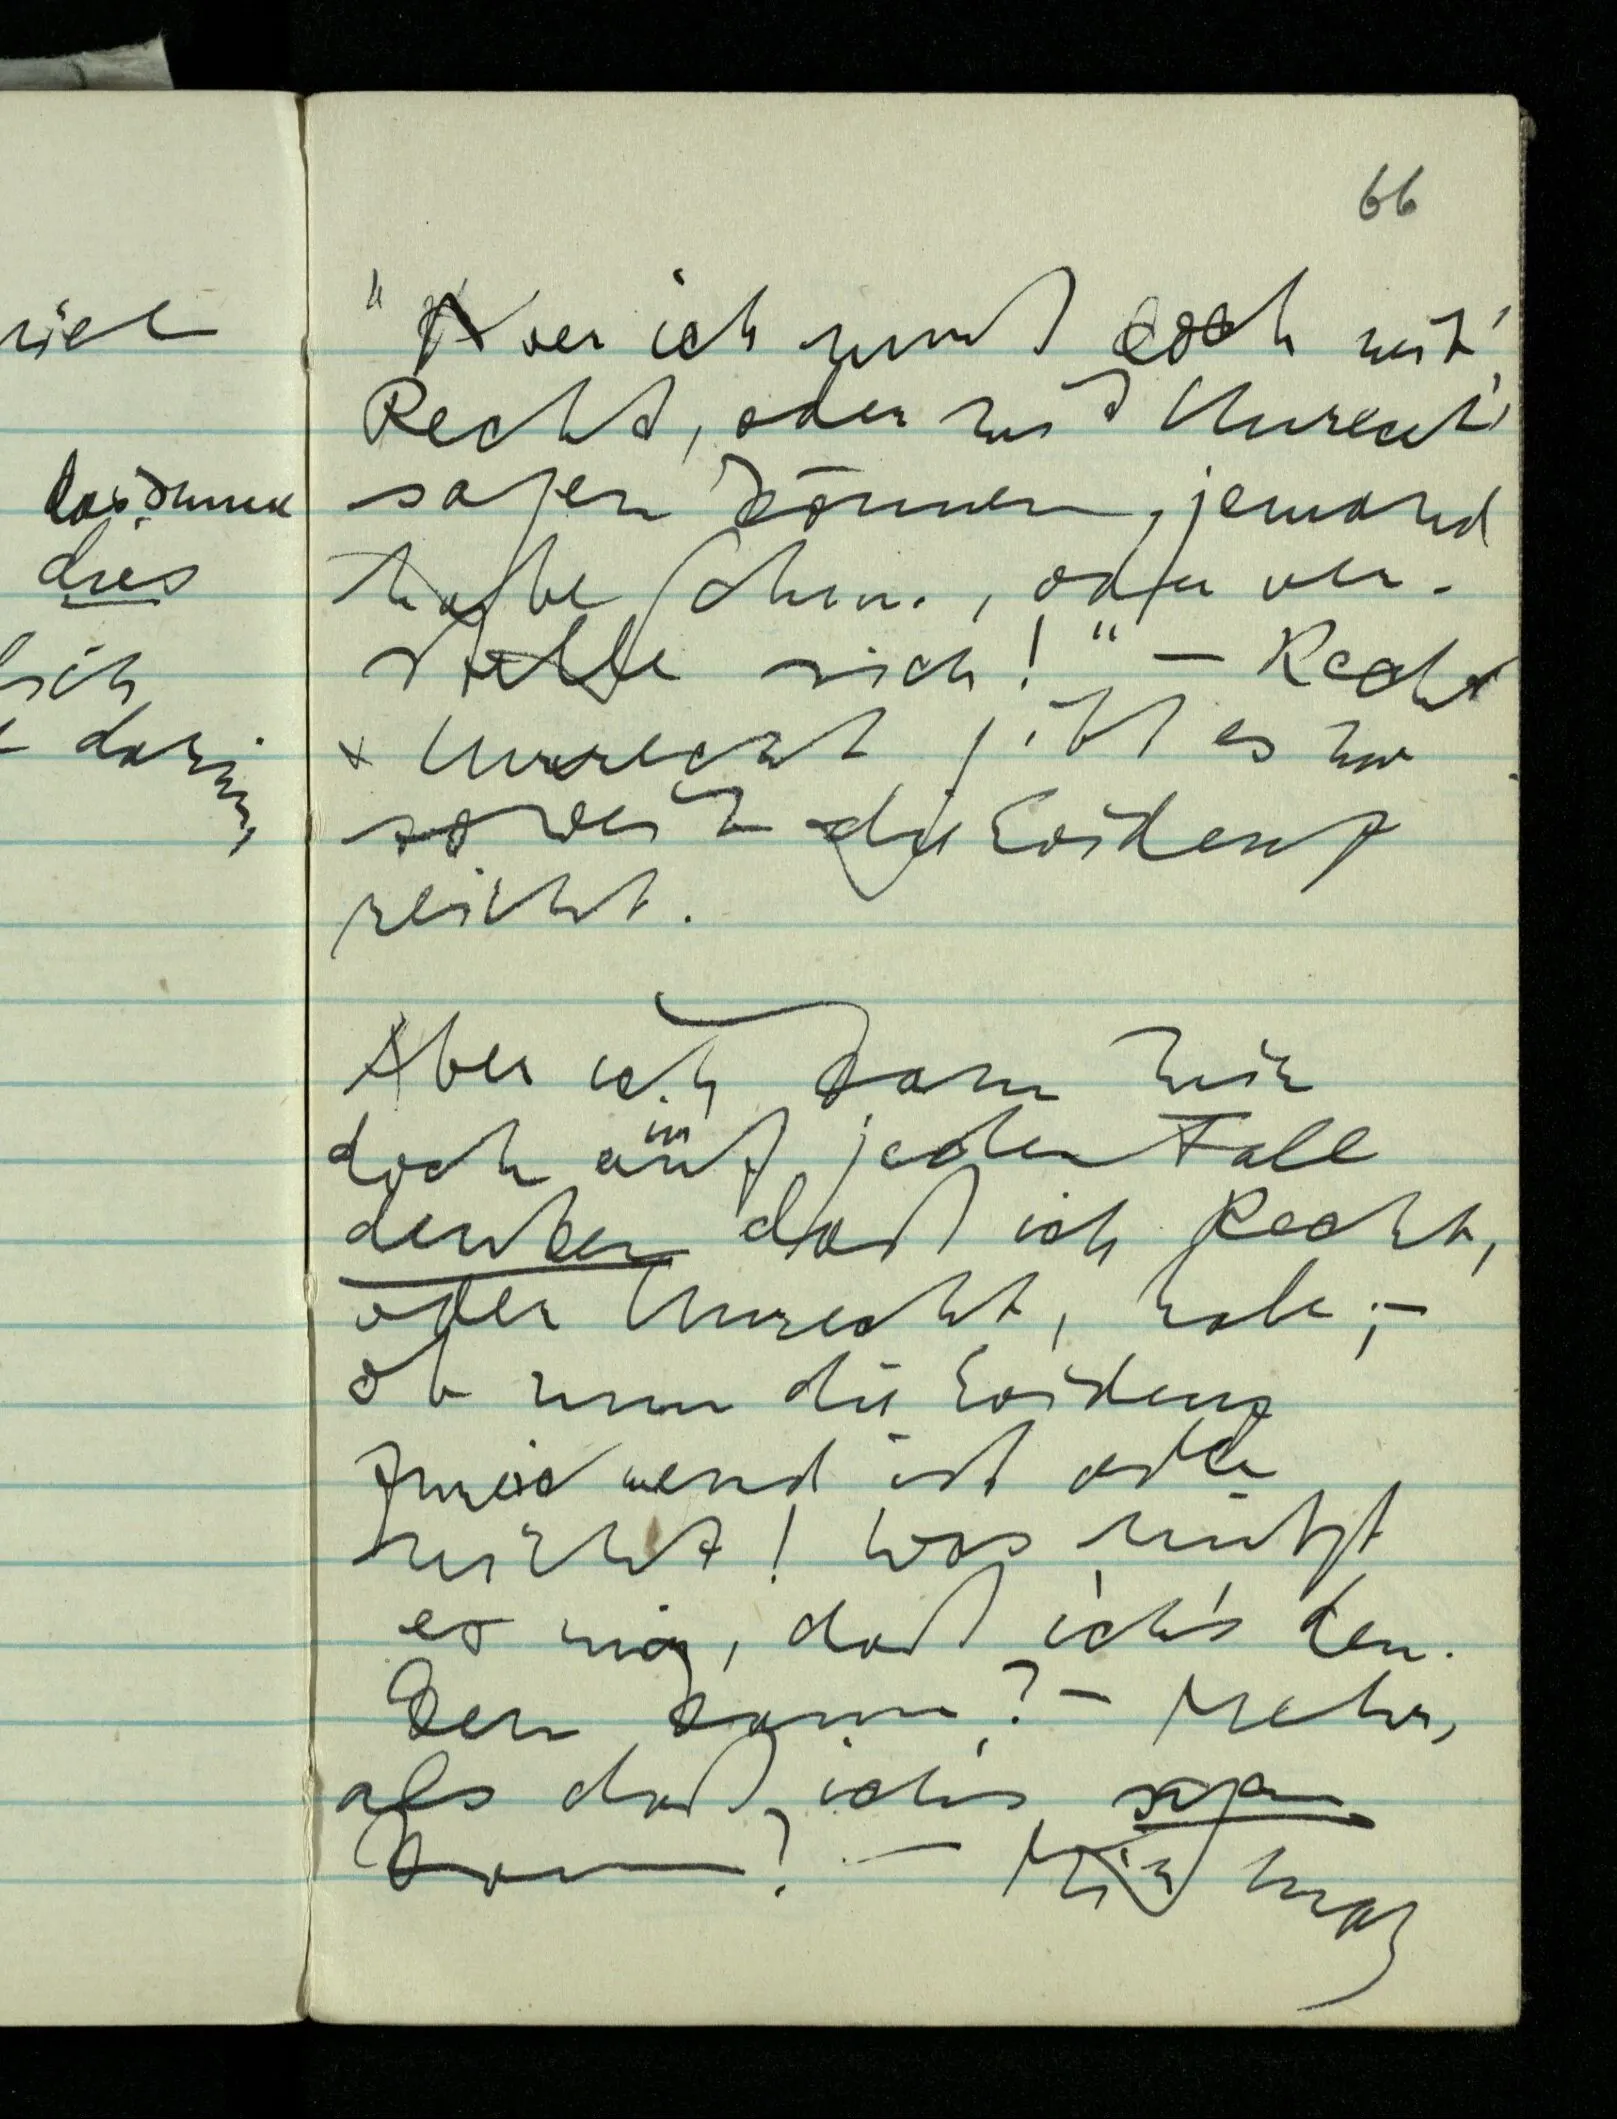 riel
das Innere
dies
sich
darin,
66
"Aber ich muß doch mit
Recht, oder mit Unrecht
sagen können, jemand
habe Schm., oder ver-
stelle sich!" — Recht
& Unrecht gibt es nur
soweit die Evidenz
reicht.
Aber ich kann mir
doch auf jeden Fall
denken daß ich Recht,
oder Unrecht, habe; —
ob nun die Evidenz
zureichend ist oder
nicht! Was nützt
es mir, daß ich's den-
ken kann? — Mehr,
als daß ich's sagen
kann? — Mir mag